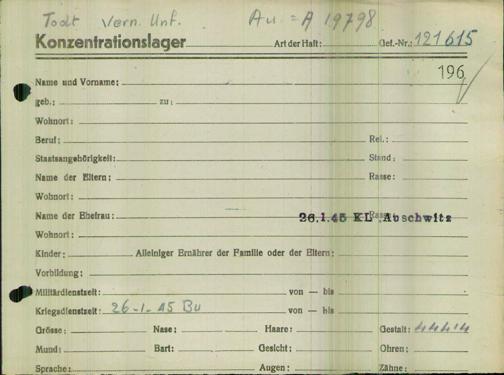 Todt Vern. Unf. Au. = A 19798
Konzentrationslager Art der Haft: Gef.-Nr.: 121615
196
Name und Vorname:
geb.: zu:
Wohnort:
Beruf: Rel.:
Staatsangehörigkeit: Stand:
Name der Eltern: Rasse:
Wohnort:
Name der Ehefrau: Rasse: 26.1.45 KL Auschwitz
Wohnort:
Kinder: Alleiniger Ernährer der Familie oder der Eltern:
Vorbildung:
Militärdienstzeit: von — bis
Kriegsdienstzeit: 26-1-45 Bu von — bis
Grösse: Nase: Haare: Gestalt: 44414
Mund: Bart: Gesicht: Ohren:
Sprache: Augen: Zähne: